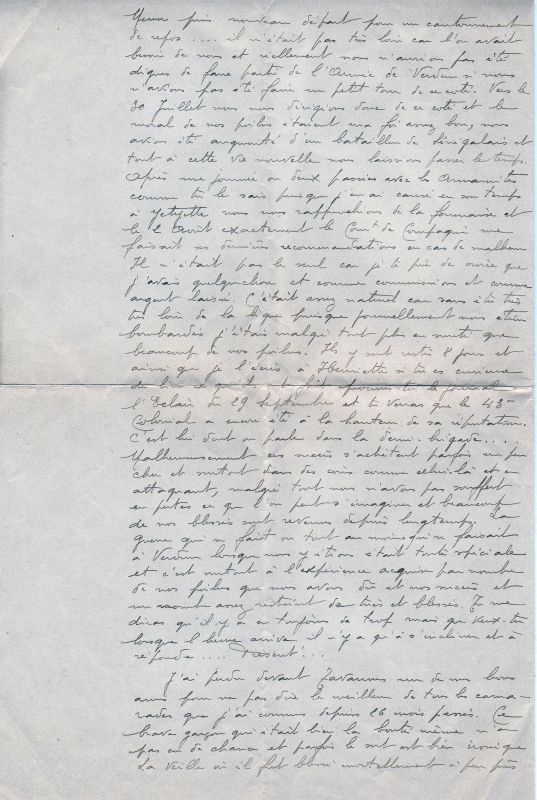 Heure puis nouveau départ pour un cantonnement
de repos .... il n'était pas très loin car l'on avait
besoin de nous et réellement nous n'aurions pas été
dignes de faire partie de l'Armée de Verdun si nous
n'avions pas été faire un petit tour de ce coté. Vers le
30 Juillet nous nous dirigions donc de ce coté et le
moral de nos poilus étaient ma foi assez bon, nous
avions été augmenté d'un bataillon de Sénégalais et
tout à cette vie nouvelle nous laissions passer le temps.
Après une journée ou deux passées avec les Annamites
comme tu le sais puisque j'en ai causé en son temps
à nous nous rapprochions de la fournaise et
le 2 Août exactement le Comt de Compagnie me
faisait ses dernières recommandations en cas de malheur
Il n'était pas le seul car je te prie de croire que
j'avais quelquechose et comme commissions et comme
argent laissé. C'était assez naturel car sans être très
très loin de la ligne puisque journellement nous étions
bombardés j'étais malgré tout plus en sureté que
beaucoup de nos poilus. Ils y sont restés 8 jours et
ainsi que je l'écris à Henriette si tu es curieuse
de lire ce qu'il ont fait procure-toi le journal
l'Eclair du 29 septembre et tu verras que le 43me
Colonial a encore été à la hauteur de sa réputation.
C'est lui dont on parle dans la demi-brigade....
Malheureusement ces succès s'achètent parfois un peu
cher et surtout dans des coins comme celui-là et en
attaquant, malgré tout nous n'avons pas souffert
en pertes ce que l'on peut s'imaginer et beaucoup
de nos blessés sont revenus depuis longtemps. La
guerre qui se fait ou tout au moins qui se faisait
à Verdun lorsque nous y étions était toute spéciale
et c'est surtout à l'expérience acquise par nombre
de nos poilus que nous avons dû et nos succès et
un nombre assez restreint de tués et blessés. Tu me
diras qu'il y en a toujours de trop mais que veux-tu
lorsque l'heure arrive il n'y a qu'à s'incliner et à
répondre .... Présent!...
J'ai perdu devant Tavannes un de mes bons
amis pour ne pas dire le meilleur de tous les cama-
rades que j'ai connus depuis 26 mois passés. Ce
brave garçon qui était bien la bonté même n'a
pas eu de chance et parfois le sort est bien ironique
La veille où il fut blessé mortellement à peu près